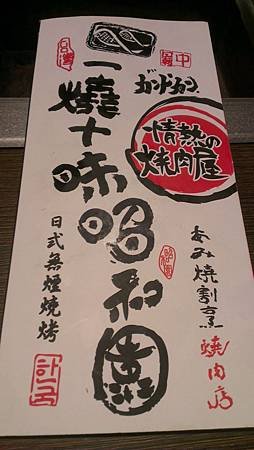 台灣
台中
ガンドカン
情熱の
焼肉屋
一燒十味昭和園
あみ焼割烹
燒肉店
日式無煙燒烤